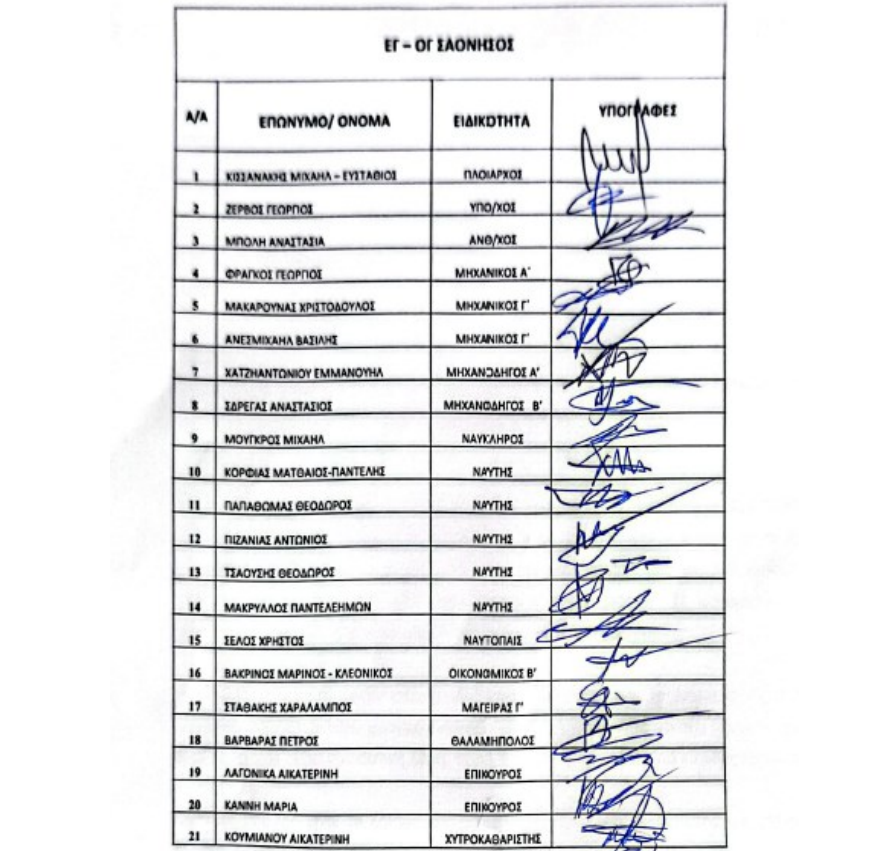 ΕΓ – ΟΓ ΣΑΟΝΗΣΟΣ
Α/Α ΕΠΩΝΥΜΟ/ ΟΝΟΜΑ ΕΙΔΙΚΟΤΗΤΑ ΥΠΟΓΡΑΦΕΣ
1 ΚΙΣΣΑΝΑΚΗΣ ΜΙΧΑΗΛ – ΕΥΣΤΑΘΙΟΣ ΠΛΟΙΑΡΧΟΣ
2 ΖΕΡΒΟΣ ΓΕΩΡΓΙΟΣ ΥΠΟ/ΧΟΣ
3 ΜΠΟΛΗ ΑΝΑΣΤΑΣΙΑ ΑΝΘ/ΧΟΣ
4 ΦΡΑΓΚΟΣ ΓΕΩΡΓΙΟΣ ΜΗΧΑΝΙΚΟΣ Α΄
5 ΜΑΚΑΡΟΥΝΑΣ ΧΡΙΣΤΟΔΟΥΛΟΣ ΜΗΧΑΝΙΚΟΣ Γ΄
6 ΑΝΕΣΜΙΧΑΗΛ ΒΑΣΙΛΗΣ ΜΗΧΑΝΙΚΟΣ Γ΄
7 ΧΑΤΖΗΑΝΤΩΝΙΟΥ ΕΜΜΑΝΟΥΗΛ ΜΗΧΑΝΟΔΗΓΟΣ Α’
8 ΣΔΡΕΓΑΣ ΑΝΑΣΤΑΣΙΟΣ ΜΗΧΑΝΟΔΗΓΟΣ Β’
9 ΜΟΥΓΚΡΟΣ ΜΙΧΑΗΛ ΝΑΥΚΛΗΡΟΣ
10 ΚΟΡΦΙΑΣ ΜΑΤΘΑΙΟΣ-ΠΑΝΤΕΛΗΣ ΝΑΥΤΗΣ
11 ΠΑΠΑΘΩΜΑΣ ΘΕΟΔΩΡΟΣ ΝΑΥΤΗΣ
12 ΠΙΖΑΝΙΑΣ ΑΝΤΩΝΙΟΣ ΝΑΥΤΗΣ
13 ΤΣΑΟΥΣΗΣ ΘΕΟΔΩΡΟΣ ΝΑΥΤΗΣ
14 ΜΑΚΡΥΛΛΟΣ ΠΑΝΤΕΛΕΗΜΩΝ ΝΑΥΤΗΣ
15 ΣΕΛΟΣ ΧΡΗΣΤΟΣ ΝΑΥΤΟΠΑΙΣ
16 ΒΑΚΡΙΝΟΣ ΜΑΡΙΝΟΣ - ΚΛΕΟΝΙΚΟΣ ΟΙΚΟΝΟΜΙΚΟΣ Β’
17 ΣΤΑΘΑΚΗΣ ΧΑΡΑΛΑΜΠΟΣ ΜΑΓΕΙΡΑΣ Γ’
18 ΒΑΡΒΑΡΑΣ ΠΕΤΡΟΣ ΘΑΛΑΜΗΠΟΛΟΣ
19 ΛΑΓΟΝΙΚΑ ΑΙΚΑΤΕΡΙΝΗ ΕΠΙΚΟΥΡΟΣ
20 ΚΑΝΝΗ ΜΑΡΙΑ ΕΠΙΚΟΥΡΟΣ
21 ΚΟΥΜΙΑΝΟΥ ΑΙΚΑΤΕΡΙΝΗ ΧΥΤΡΟΚΑΘΑΡΙΣΤΗΣ